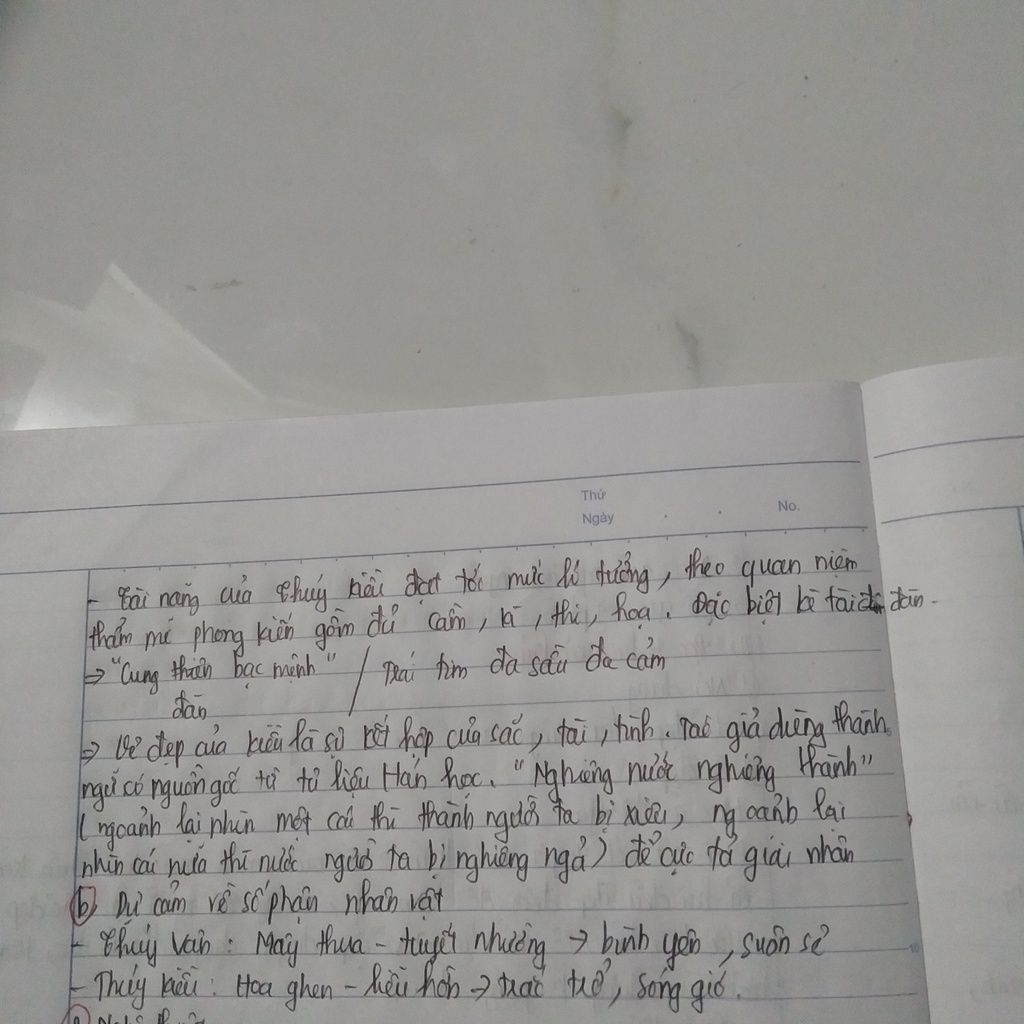 Thứ
Ngày
No.
- Tài năng của Thúy Kiều đạt tới mức lí tưởng, theo quan niệm
thẩm mĩ phong kiến gồm đủ cầm, kì, thi, họa. Đặc biệt là tài đàn.
⇒ "Cung thiên bạc mệnh" / Trái tim đa sầu đa cảm
đàn
⇒ Vẻ đẹp của Kiều là sự kết hợp của sắc, tài, tình. Tác giả dùng thành
ngữ có nguồn gốc từ từ liệu Hán học. "Nghiêng nước nghiêng thành"
(ngoảnh lại nhìn một cái thì thành người ta bị xiêu, ngoảnh lại
nhìn cái nữa thì nước người ta bị nghiêng ngả) để cực tả giai nhân
b) Dự cảm về số phận nhân vật
- Thúy Vân: Mây thua - tuyết nhường → bình yên, suôn sẻ
- Thúy Kiều: Hoa ghen - liễu hờn → trắc trở, sóng gió.